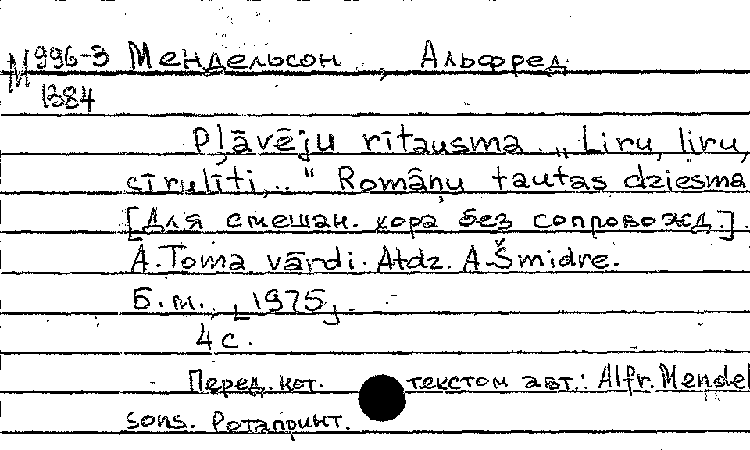 М 996-3 Мендельсон, Альфред
1384
Pļāvēju rītausma. „Liru, liru,
cīrulīti,.." Romāņu tautas dziesma
[Для смешан. хора без сопровожд.].
A. Toma vārdi. Atdz. A. Šmidre.
Б.м., [1975].
4 с.
Перед. нот. текстом авт.: Alfr. Mendel
sons. Ротапринт.